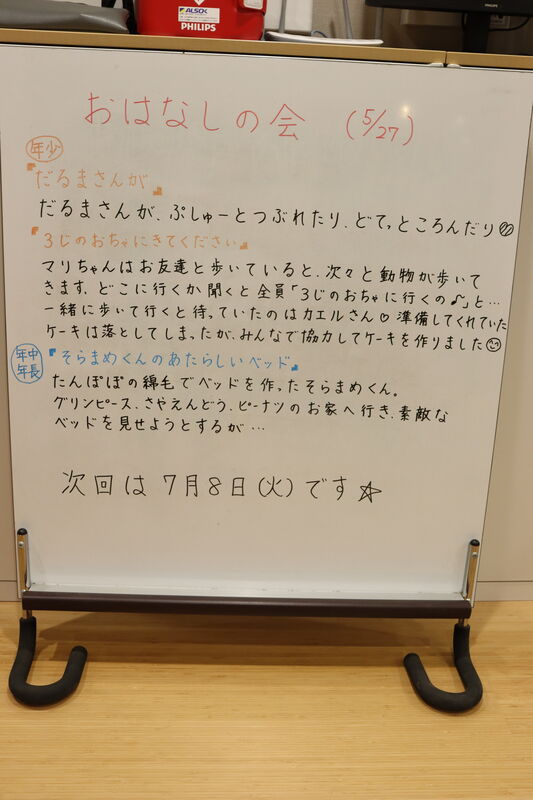 ALSOK
PHILIPS
PHILIPS
おはなしの会 (5/27)
年少
『だるまさんが』
だるまさんが、ぷしゅーとつぶれたり、どてっところんだり
『3じのおちゃにきてください』
マリちゃんはお友達と歩いていると、次々と動物が歩いて
きます。どこに行くか聞くと全員「3じのおちゃに行くの♪」と…
一緒に歩いて行くと待っていたのはカエルさん♡準備してくれていた
ケーキは落としてしまったが、みんなで協力してケーキを作りました☺
年中
年長
『そらまめくんのあたらしいベッド』
たんぽぽの綿毛でベッドを作ったそらまめくん。
グリンピース、さやえんどう、ピーナツのお家へ行き、素敵な
ベッドを見せようとするが…
次回は7月8日(火)です☆